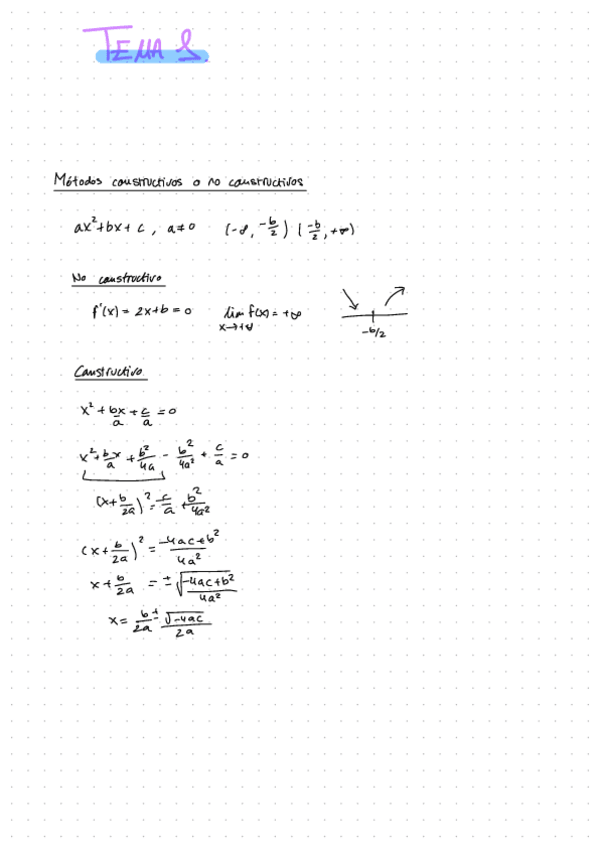 TEMA 1.
Métodos constructivos o no constructivos
ax²+bx+c, a≠0 (-∞, -b/2) (-b/2, +∞)
No constructivo
f'(x) = 2x+b = 0 lim f(x) = +∞
x→+∞
-b/2
Constructivo
x² + bx/a + c/a = 0
x² + b/a x + b²/4a - b²/4a² + c/a = 0
(x+b/2a)² = -c/a + b²/4a²
(x+b/2a)² = -4ac+b²/4a²
x+b/2a = ±√(-4ac+b²/4a²)
x = b/2a ± √-4ac/2a